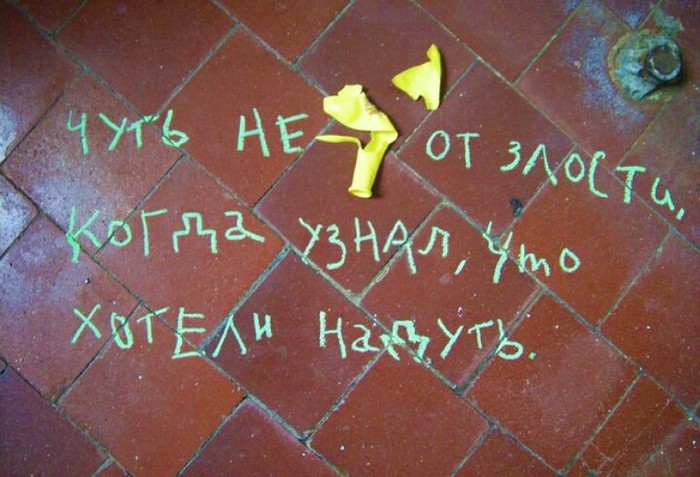 чуть не от злости,
когда узнал, что
хотели надуть.